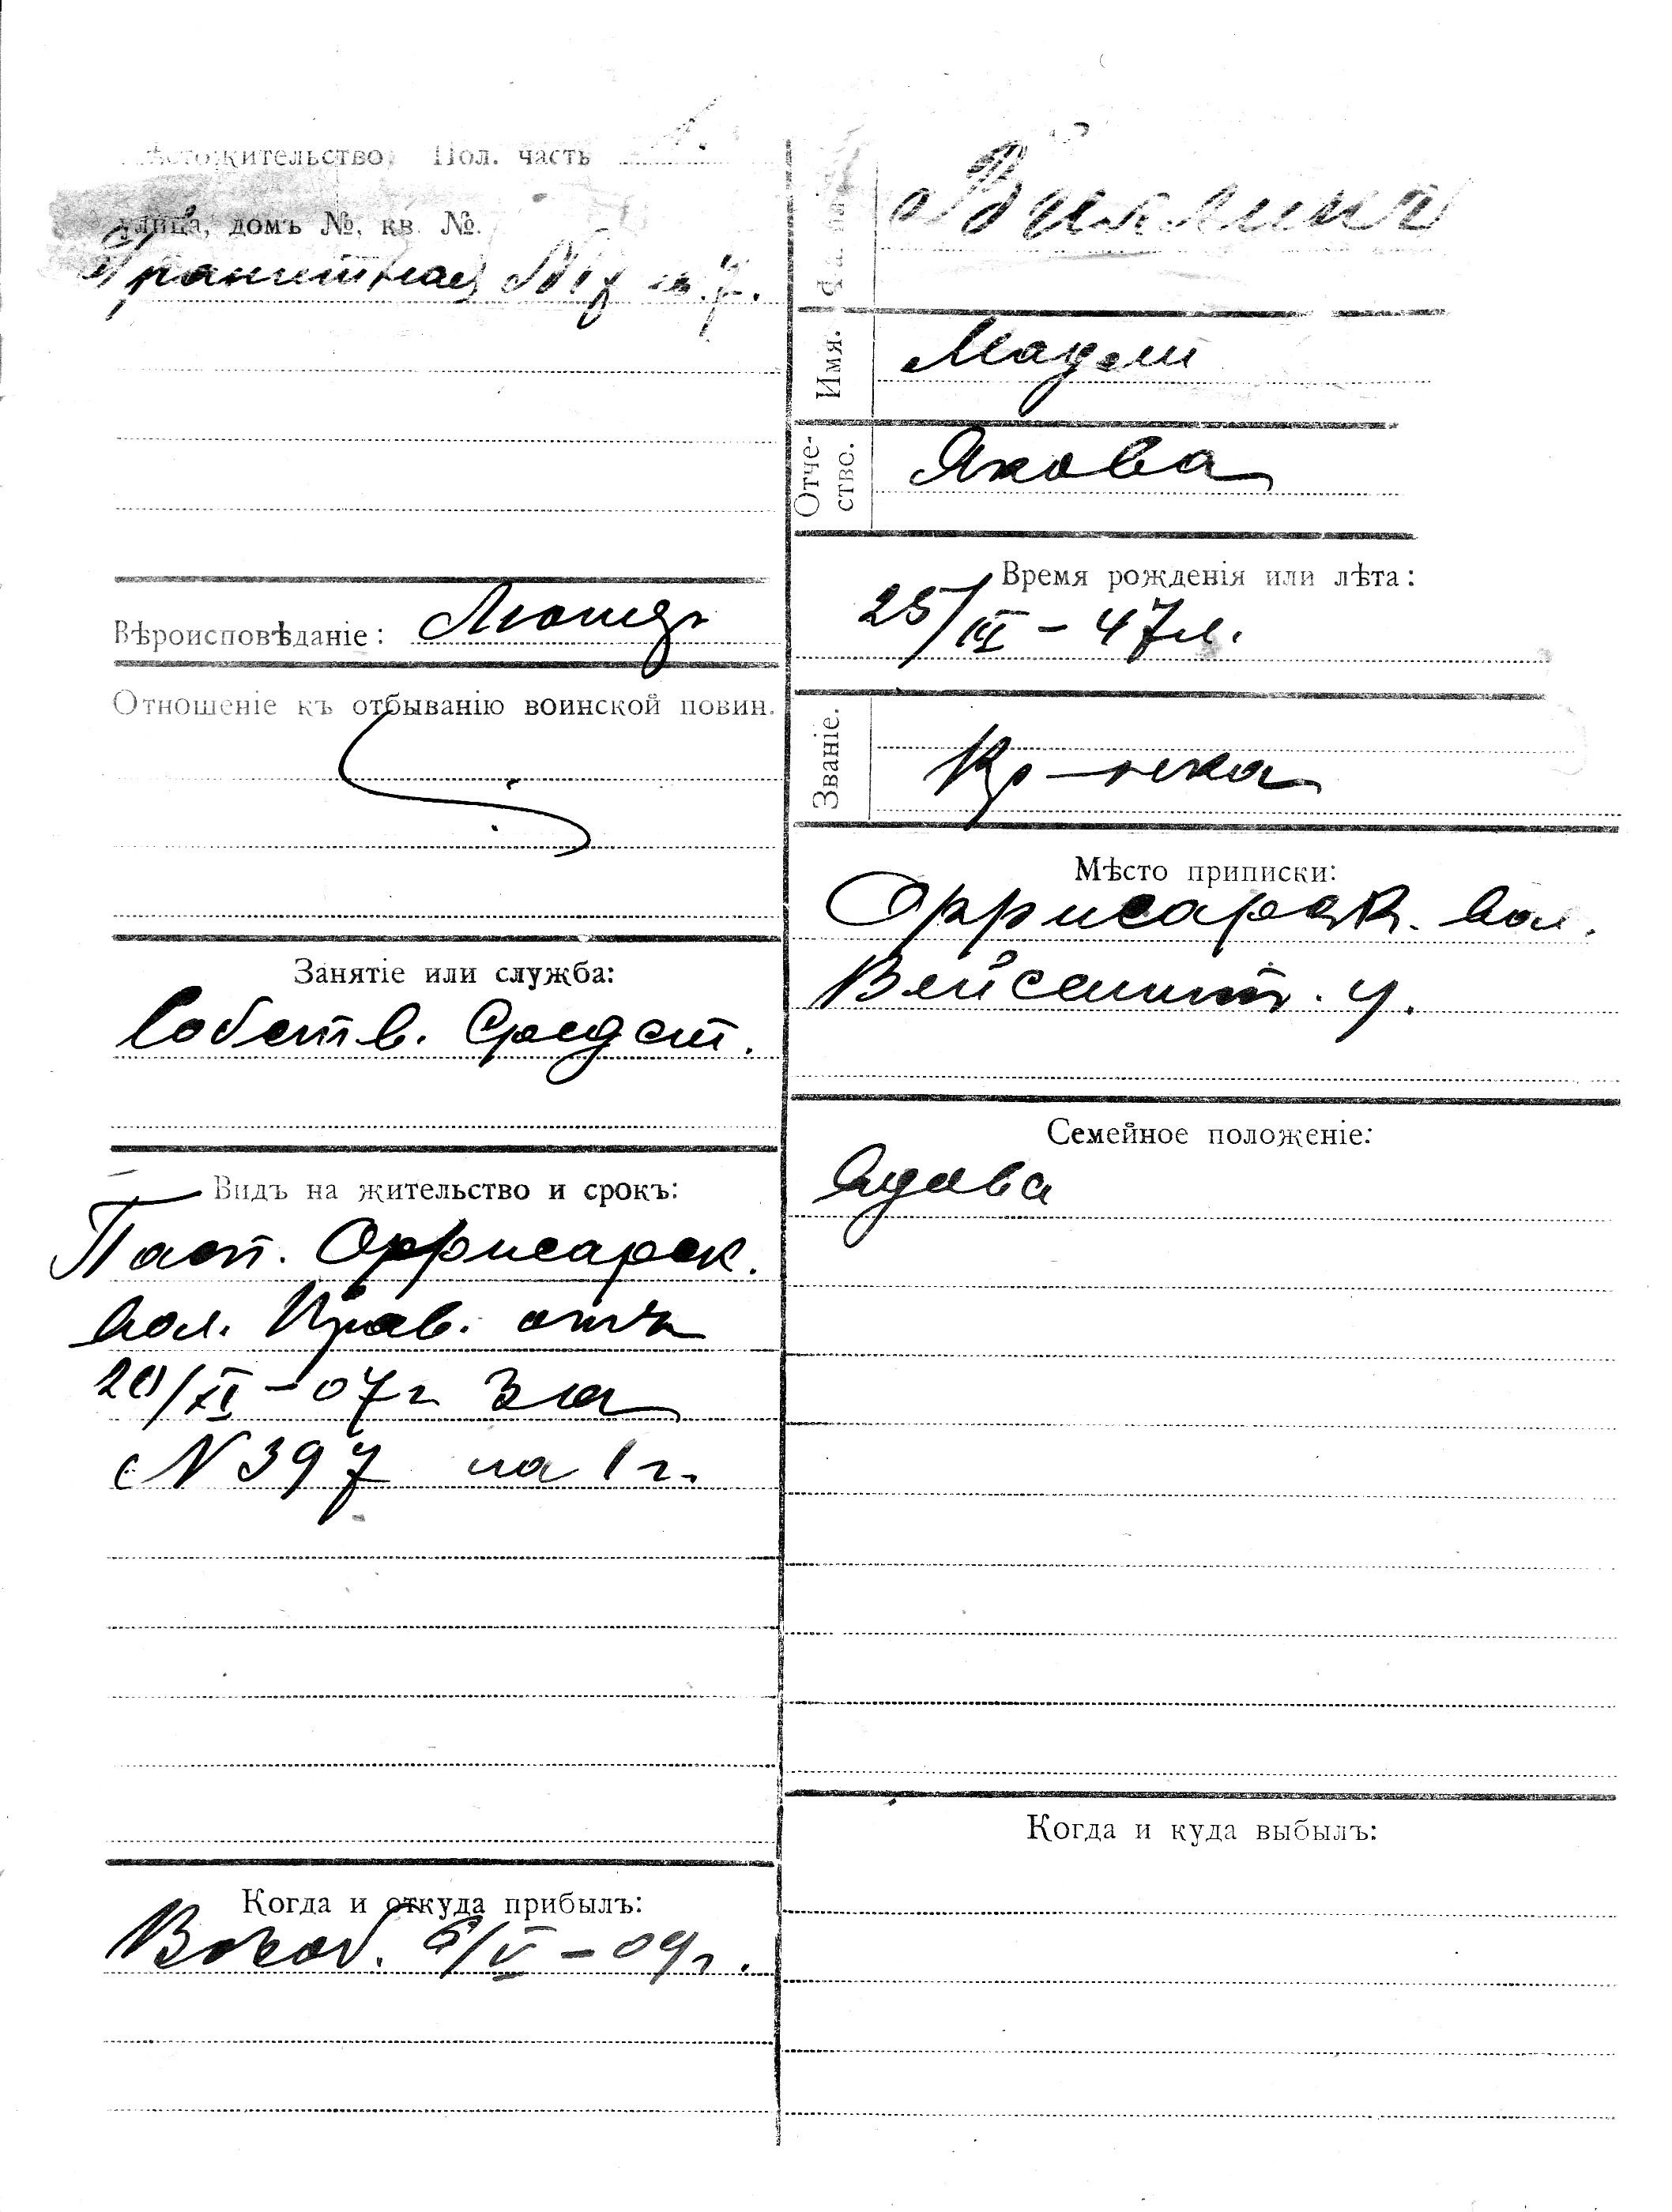 мѣстожительство: Пол. часть
улица, домъ №, кв. №.
Гранитная №17 кв. 7.
Вѣроисповѣданіе: Лютер
Отношеніе къ отбыванію воинской повин.
Занятіе или служба:
Собств. Средст.
Видъ на жительство и срокъ:
Пасп. Оррисарск.
вол. Прав. отъ
20/XI – 07 г. за
№ 397 на 1 г.
Когда и откуда прибылъ:
6/V – 09 г.
Имя. Мадли
Отче-
ство. Якова
Время рожденія или лѣта:
25/III – 47 л.
Званіе. Кр–нка
Мѣсто приписки:
Оррисарск. вол.
Вейсеншт. у.
Семейное положеніе:
Вдова
Когда и куда выбылъ: